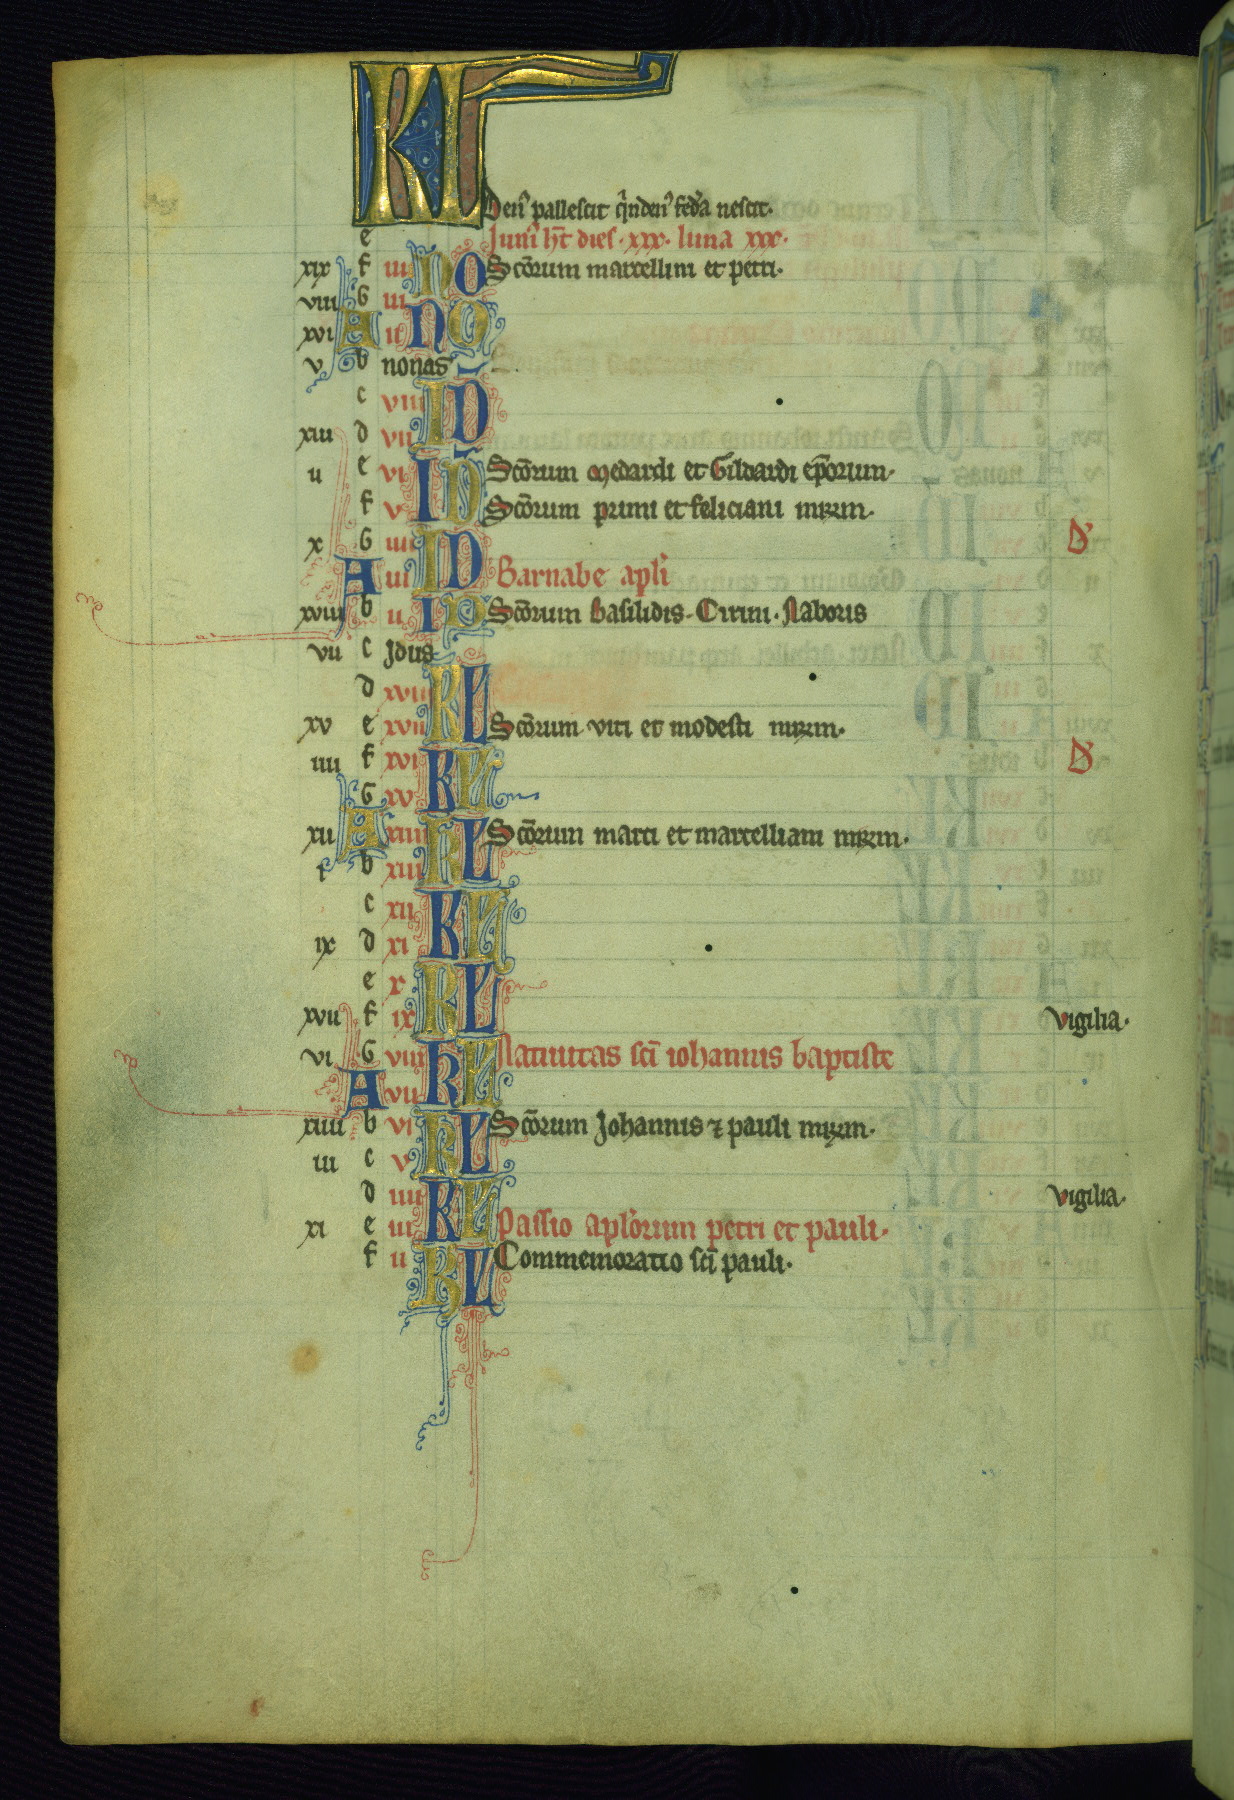 KL
Den᷒ pallescit q̇nden᷒ fed'a nescit.
e Juni᷒ ht̄ dies .xxx. luna xxx.
xix f iiii NO Scōrum marcellini et petri.
viii G iii
xvi A ii NO
v b nonas
c viii ID
xiii d vii
ii e vi ID Scōrum medardi et Gildardi ep̄orum.
f v Scōrum primi et feliciani mr̄m.
x G iiii ID D'
A iii Barnabe apl'i
xviii b ii ID Scōrum Basilidis. Cirini. Naboris
vii c Jdus
d xviii KL
xv e xvii Scōrum viti et modesti mr̄m.
iiii f xvi KL D'
G xv
xii A xiiii KL Scōrum marci et marcelliani mr̄m.
i b xiii
c xii KL
ix d xi
e x KL
xvii f ix vigilia.
vi G viii KL Natiuitas sc̄i iohannis baptiste
A vii
xiiii b vi KL Scōrum Johannis ⁊ pauli mr̄m.
iii c v
d iiii KL vigilia.
xi e iii Passio apl'orum petri et pauli.
f ii KL Commemoratio sc̄i pauli.